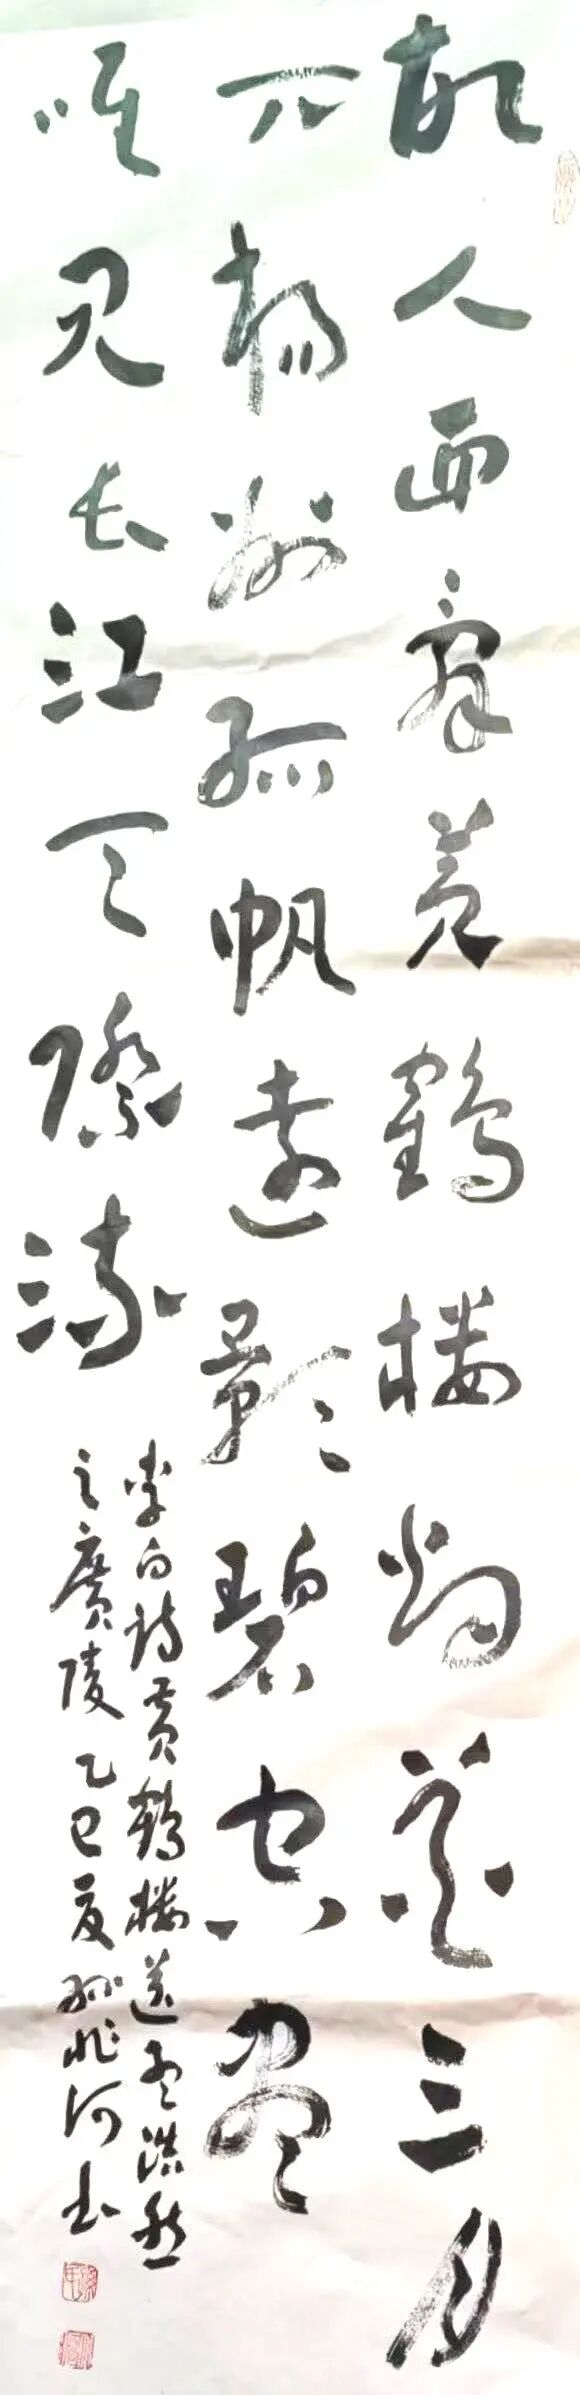 故人西辞黄鶴楼烟花三月
下揚州孤帆遠影碧空尽
唯见长江天際流
李白诗黄鶴楼送孟浩然
之廣陵乙巳夏孙河书